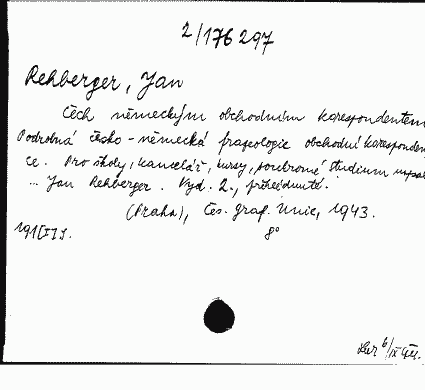 2/176 297
Rehberger, Jan
Čech německým obchodním korespondentem
Podrobná česko-německá frazeologie obchodní koresponden
ce. Pro školy, kancelář, kursy, soukromé studium napsal
... Jan Rehberger. Vyd. 2., přehlédnuté.
(Praha), Čes. graf. Unie, 1943.
191[I]s. 8°